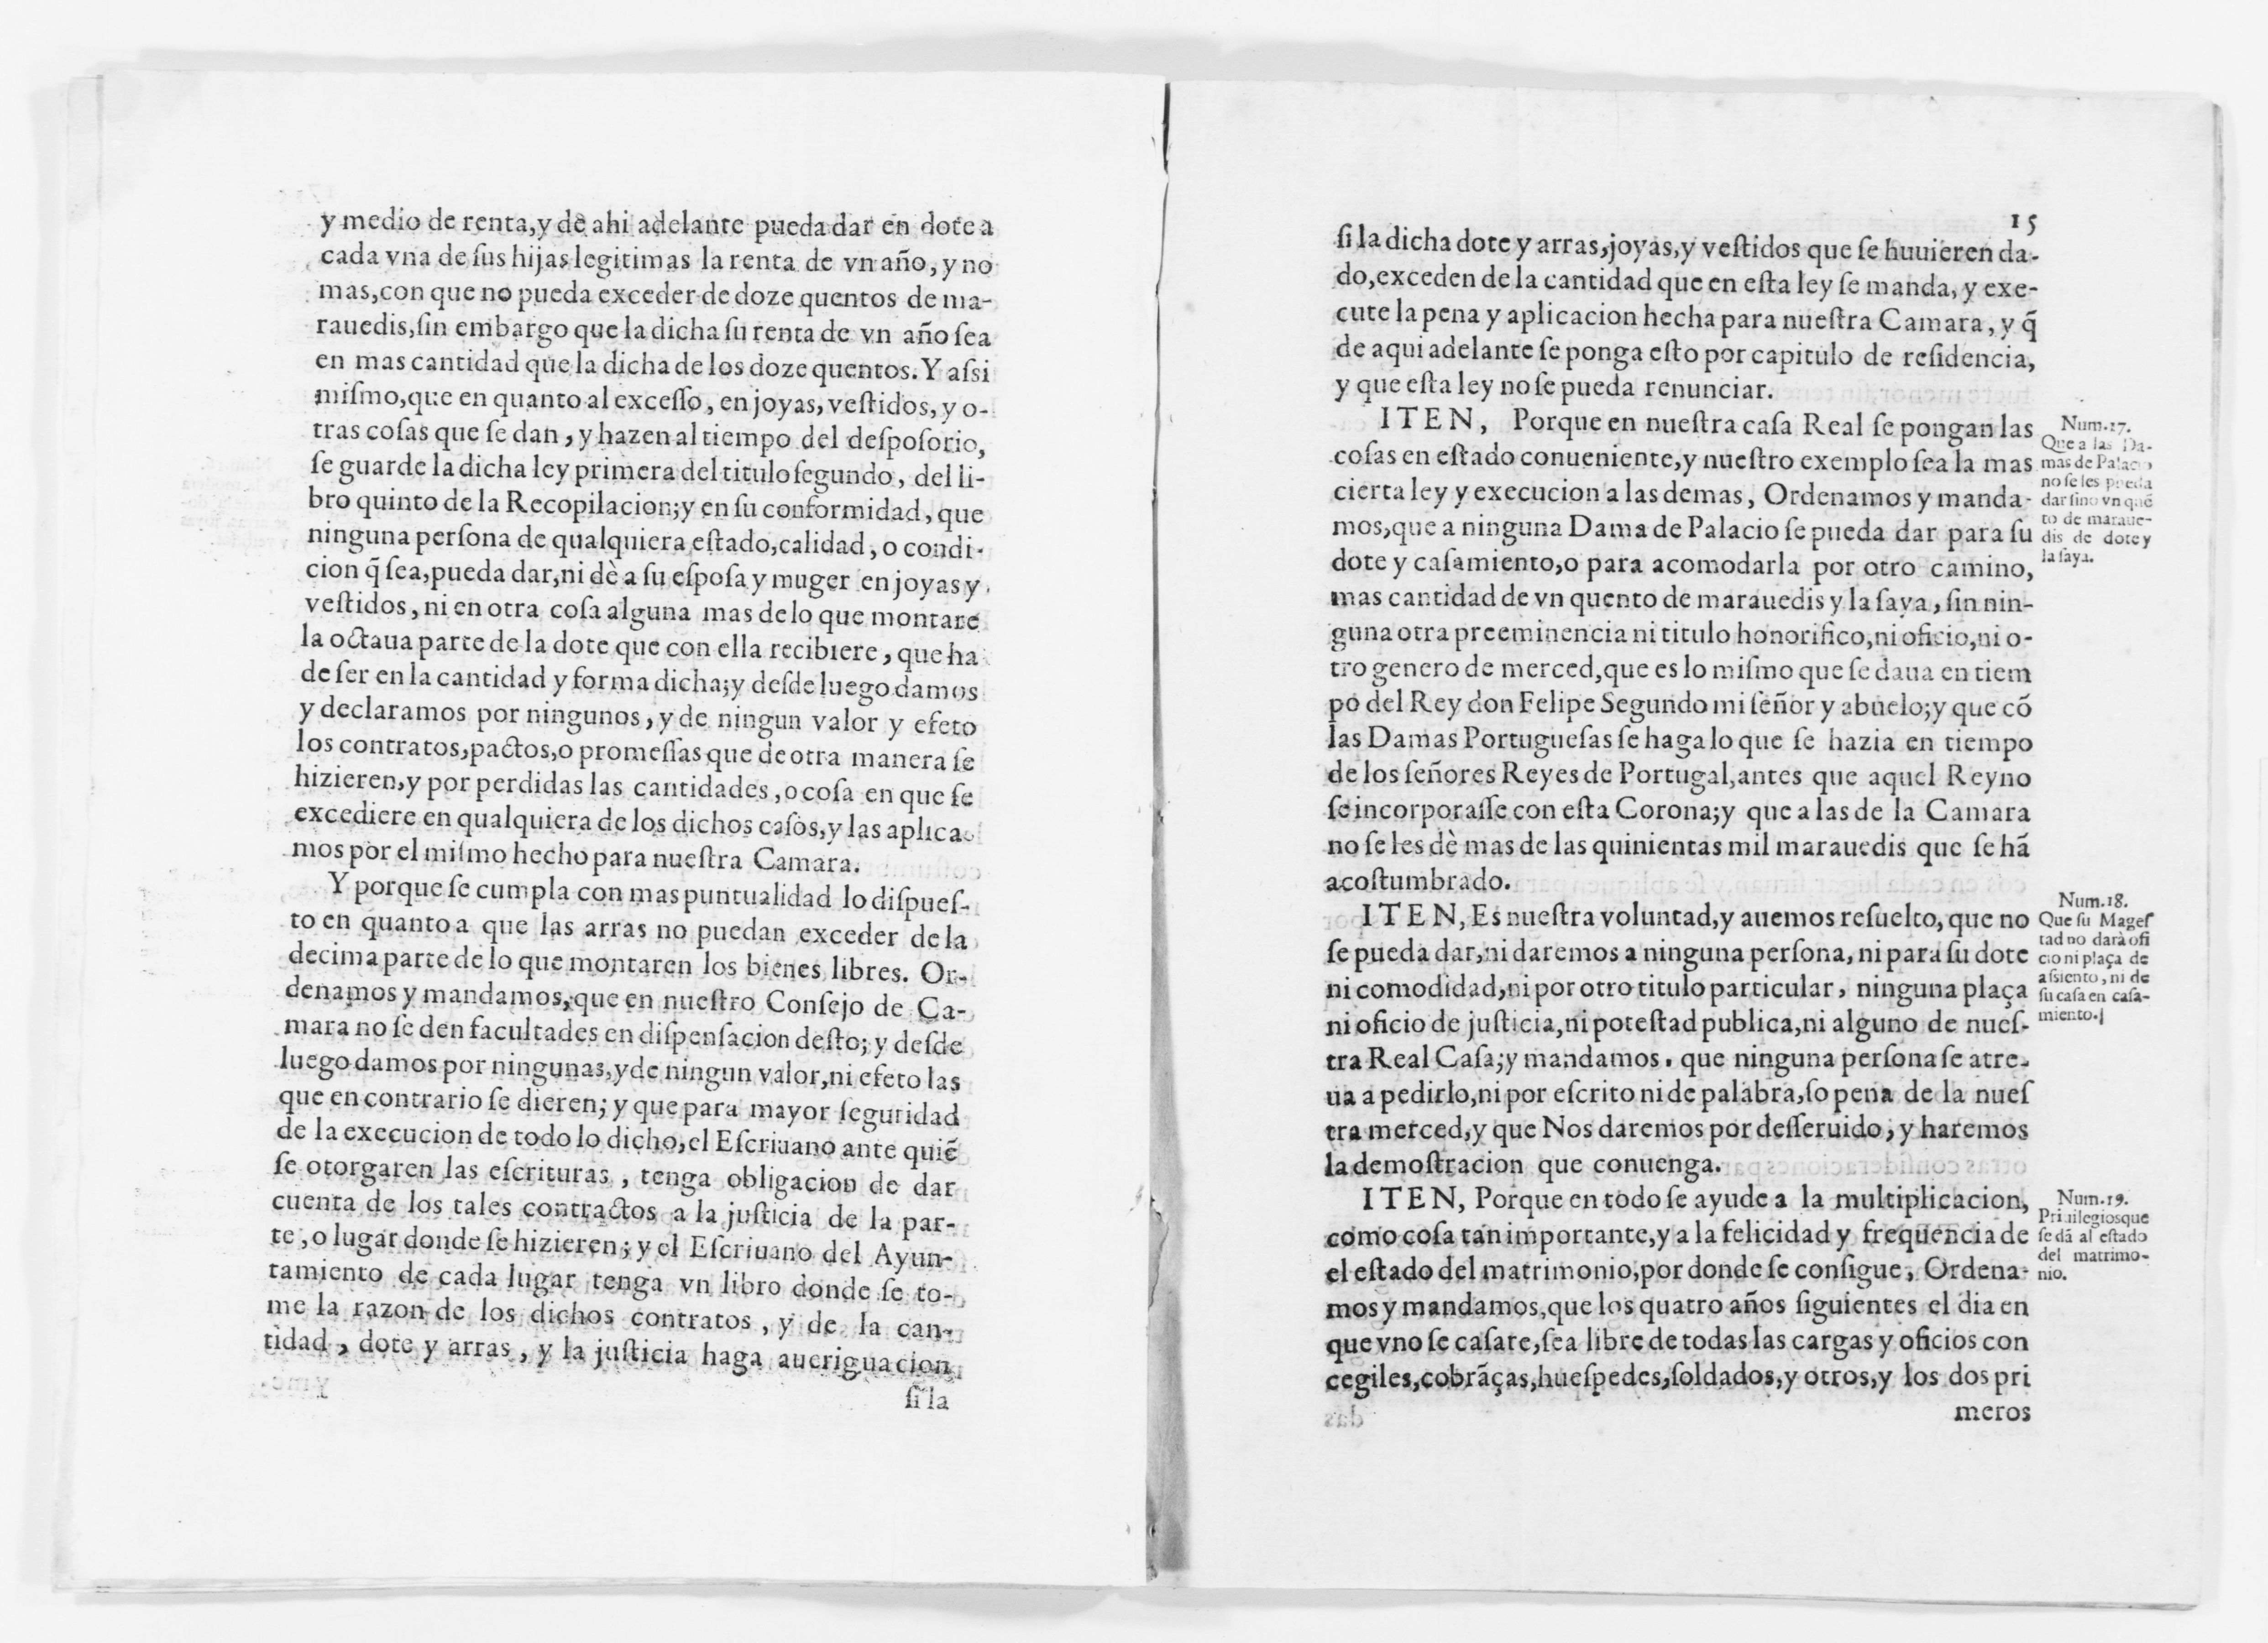 y medio de renta, y de ahi adelante pueda dar en dote a
cada vna de ſus hijas legitimas la renta de vn año, y no
mas, con que no pueda exceder de doze quentos de ma-
rauedis, ſin embargo que la dicha ſu renta de vn año ſea
en mas cantidad que la dicha de los doze quentos. Y aſsi
miſmo, que en quanto al exceſſo, en joyas, veſtidos, y o-
tras coſas que ſe dan, y hazen al tiempo del deſpoſorio,
ſe guarde la dicha ley primera del titulo ſegundo, del li-
bro quinto de la Recopilacion; y en ſu conformidad, que
ninguna perſona de qualquiera eſtado, calidad, o condi-
cion q̃ ſea, pueda dar, ni dè a ſu eſpoſa y muger en joyas y
veſtidos, ni en otra coſa alguna mas de lo que montare
la octaua parte de la dote que con ella recibiere, que ha
de ſer en la cantidad y forma dicha; y deſde luego damos
y declaramos por ningunos, y de ningun valor y efeto
los contratos, pactos, o promeſſas que de otra manera ſe
hizieren, y por perdidas las cantidades, o coſa en que ſe
excediere en qualquiera de los dichos caſos, y las aplica-
mos por el miſmo hecho para nueſtra Camara.
Y porque ſe cumpla con mas puntualidad lo diſpueſ-
to en quanto a que las arras no puedan exceder de la
decima parte de lo que montaren los bienes libres. Or-
denamos y mandamos, que en nueſtro Conſejo de Ca-
mara no ſe den facultades en diſpenſacion deſto; y deſde
luego damos por ningunas, y de ningun valor, ni efeto las
que en contrario ſe dieren; y que para mayor ſeguridad
de la execucion de todo lo dicho, el Eſcriuano ante quiẽ
ſe otorgaren las eſcrituras, tenga obligacion de dar
cuenta de los tales contractos a la juſticia de la par-
te, o lugar donde ſe hizieren; y el Eſcriuano del Ayun-
tamiento de cada lugar tenga vn libro donde ſe to-
me la razon de los dichos contratos, y de la can-
tidad, dote y arras, y la juſticia haga aueriguacion
ſi la
15
ſi la dicha dote y arras, joyas, y veſtidos que ſe huuieren da-
do, exceden de la cantidad que en eſta ley ſe manda, y exe-
cute la pena y aplicacion hecha para nueſtra Camara, y q̃
de aqui adelante ſe ponga eſto por capitulo de reſidencia,
y que eſta ley no ſe pueda renunciar.
ITEN, Porque en nueſtra caſa Real ſe pongan las
coſas en eſtado conueniente, y nueſtro exemplo ſea la mas
cierta ley y execucion a las demas, Ordenamos y manda-
mos, que a ninguna Dama de Palacio ſe pueda dar para ſu
dote y caſamiento, o para acomodarla por otro camino,
mas cantidad de vn quento de marauedis y la ſaya, ſin nin-
guna otra preeminencia ni titulo honorifico, ni oficio, ni o-
tro genero de merced, que es lo miſmo que ſe daua en tiem
po del Rey don Felipe Segundo mi ſeñor y abuelo; y que cõ
las Damas Portugueſas ſe haga lo que ſe hazia en tiempo
de los ſeñores Reyes de Portugal, antes que aquel Reyno
ſe incorporaſſe con eſta Corona; y que a las de la Camara
no ſe les dè mas de las quinientas mil marauedis que ſe hã
acoſtumbrado.
ITEN, Es nueſtra voluntad, y auemos reſuelto, que no
ſe pueda dar, ni daremos a ninguna perſona, ni para ſu dote
ni comodidad, ni por otro titulo particular, ninguna plaça
ni oficio de juſticia, ni poteſtad publica, ni alguno de nueſ-
tra Real Caſa; y mandamos, que ninguna perſona ſe atre-
ua a pedirlo, ni por eſcrito ni de palabra, ſo pena de la nueſ
tra merced, y que Nos daremos por deſſeruido, y haremos
la demoſtracion que conuenga.
ITEN, Porque en todo ſe ayude a la multiplicacion,
como coſa tan importante, y a la felicidad y frequencia de
el eſtado del matrimonio, por donde ſe conſigue, Ordena-
mos y mandamos, que los quatro años ſiguientes el dia en
que vno ſe caſare, ſea libre de todas las cargas y oficios con
cegiles, cobrãças, hueſpedes, ſoldados, y otros, y los dos pri
meros
Num.17.
Que a las Da-
mas de Palacio
no ſe les pueda
dar ſino vn quẽ
to de maraue-
dis de dote y
la ſaya.
Num.18.
Que ſu Mageſ
tad no darà ofi
cio ni plaça de
aſsiento, ni de
ſu caſa en caſa-
miento.
Num.19.
Priuilegios que
ſe dã al eſtado
del matrimo-
nio.